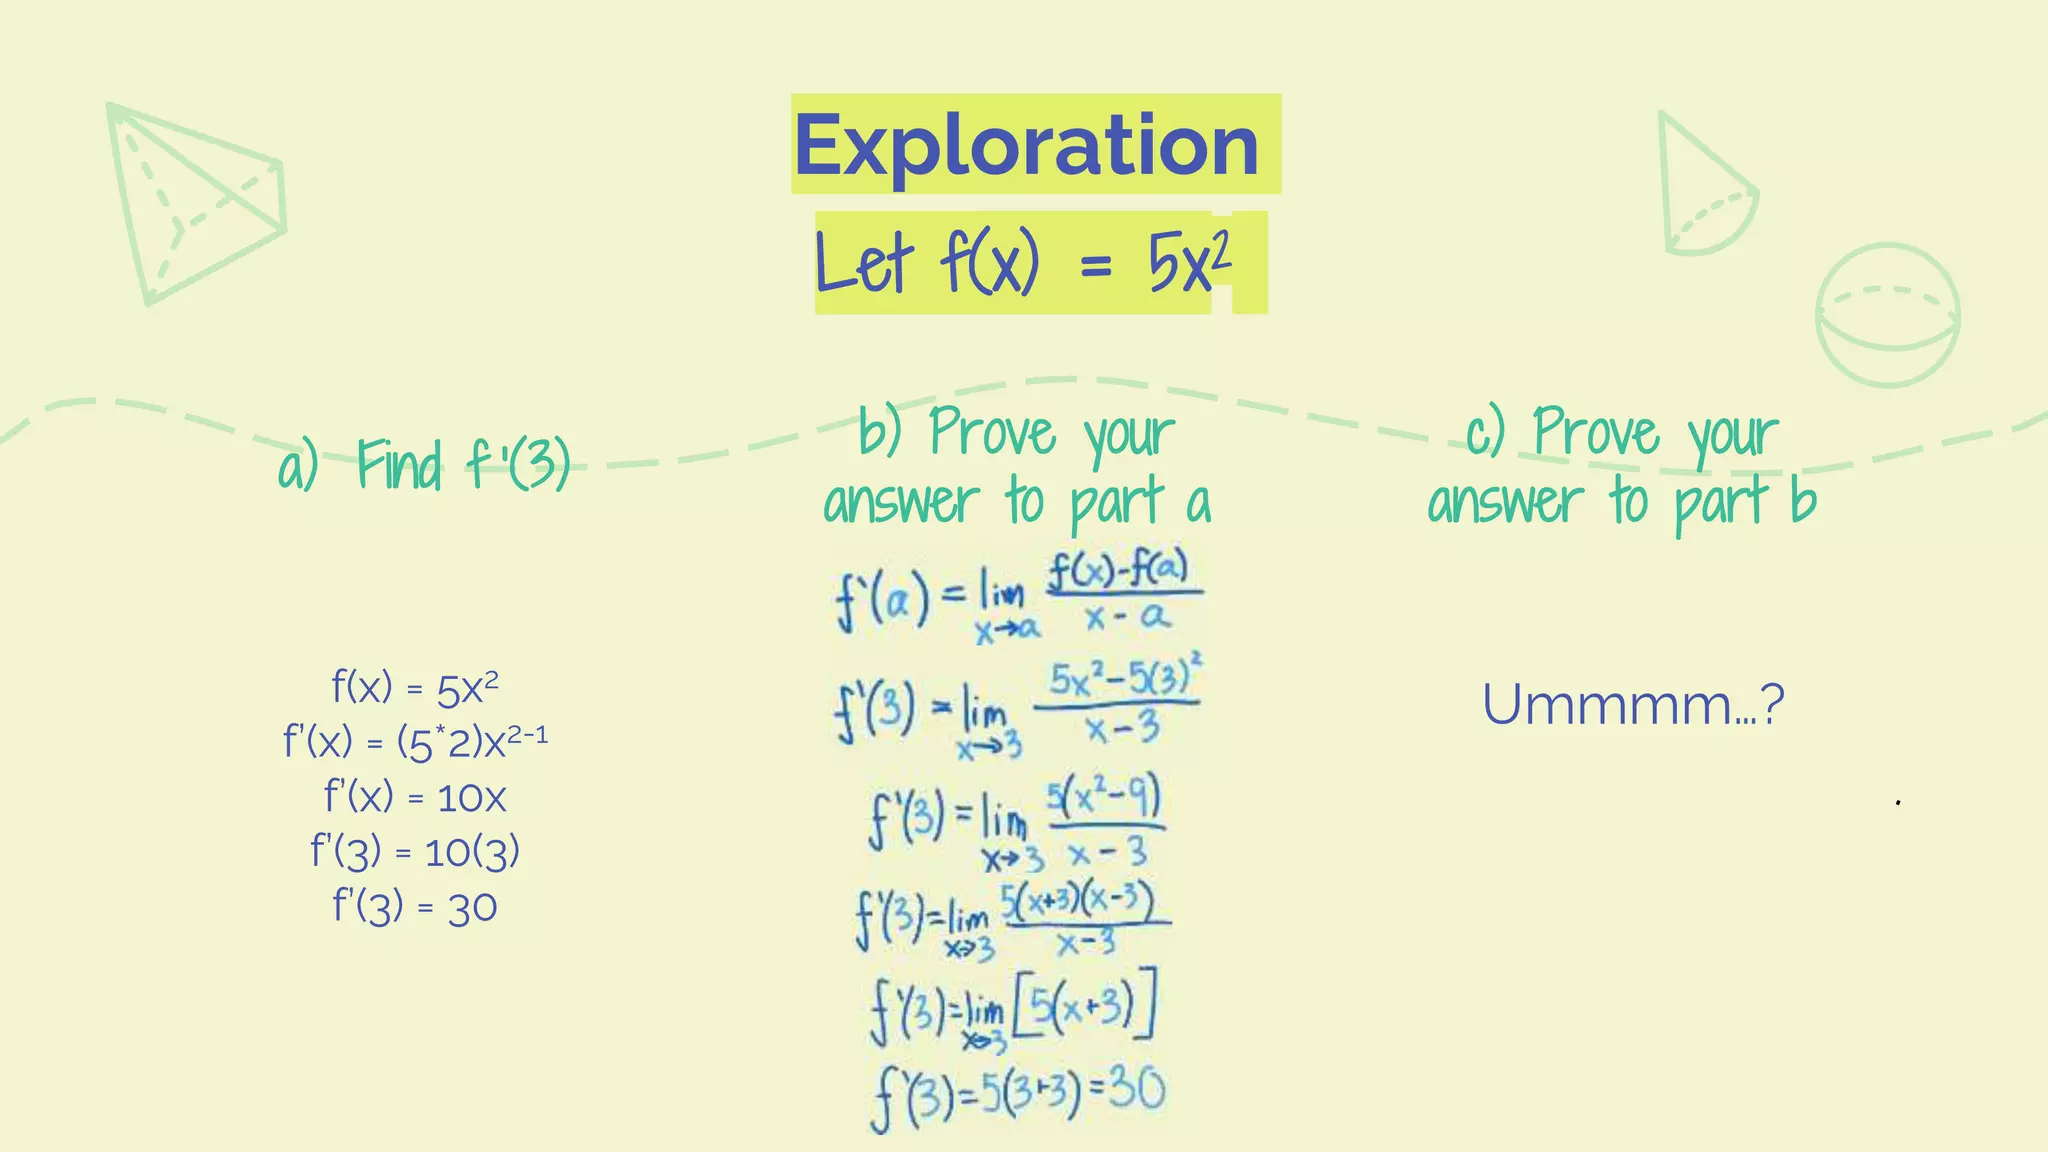 Exploration
Let f(x) = 5x²
a) Find f '(3)
f(x) = 5x²
f'(x) = (5*2)x²⁻¹
f'(x) = 10x
f'(3) = 10(3)
f'(3) = 30
b) Prove your
answer to part a
f'(a) = lim x→a f(x)-f(a) / x-a
f'(3) = lim x→3 5x²-5(3)² / x-3
f'(3) = lim x→3 5(x²-9) / x-3
f'(3) = lim x→3 5(x+3)(x-3) / x-3
f'(3) = lim x→3 [5(x+3)]
f'(3) = 5(3+3) = 30
c) Prove your
answer to part b
Ummmm...?